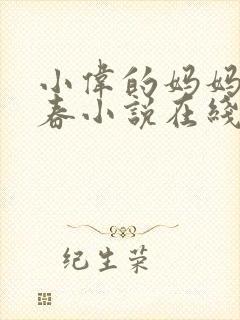 小偉的妈妈
春小説在綫
纪生荣